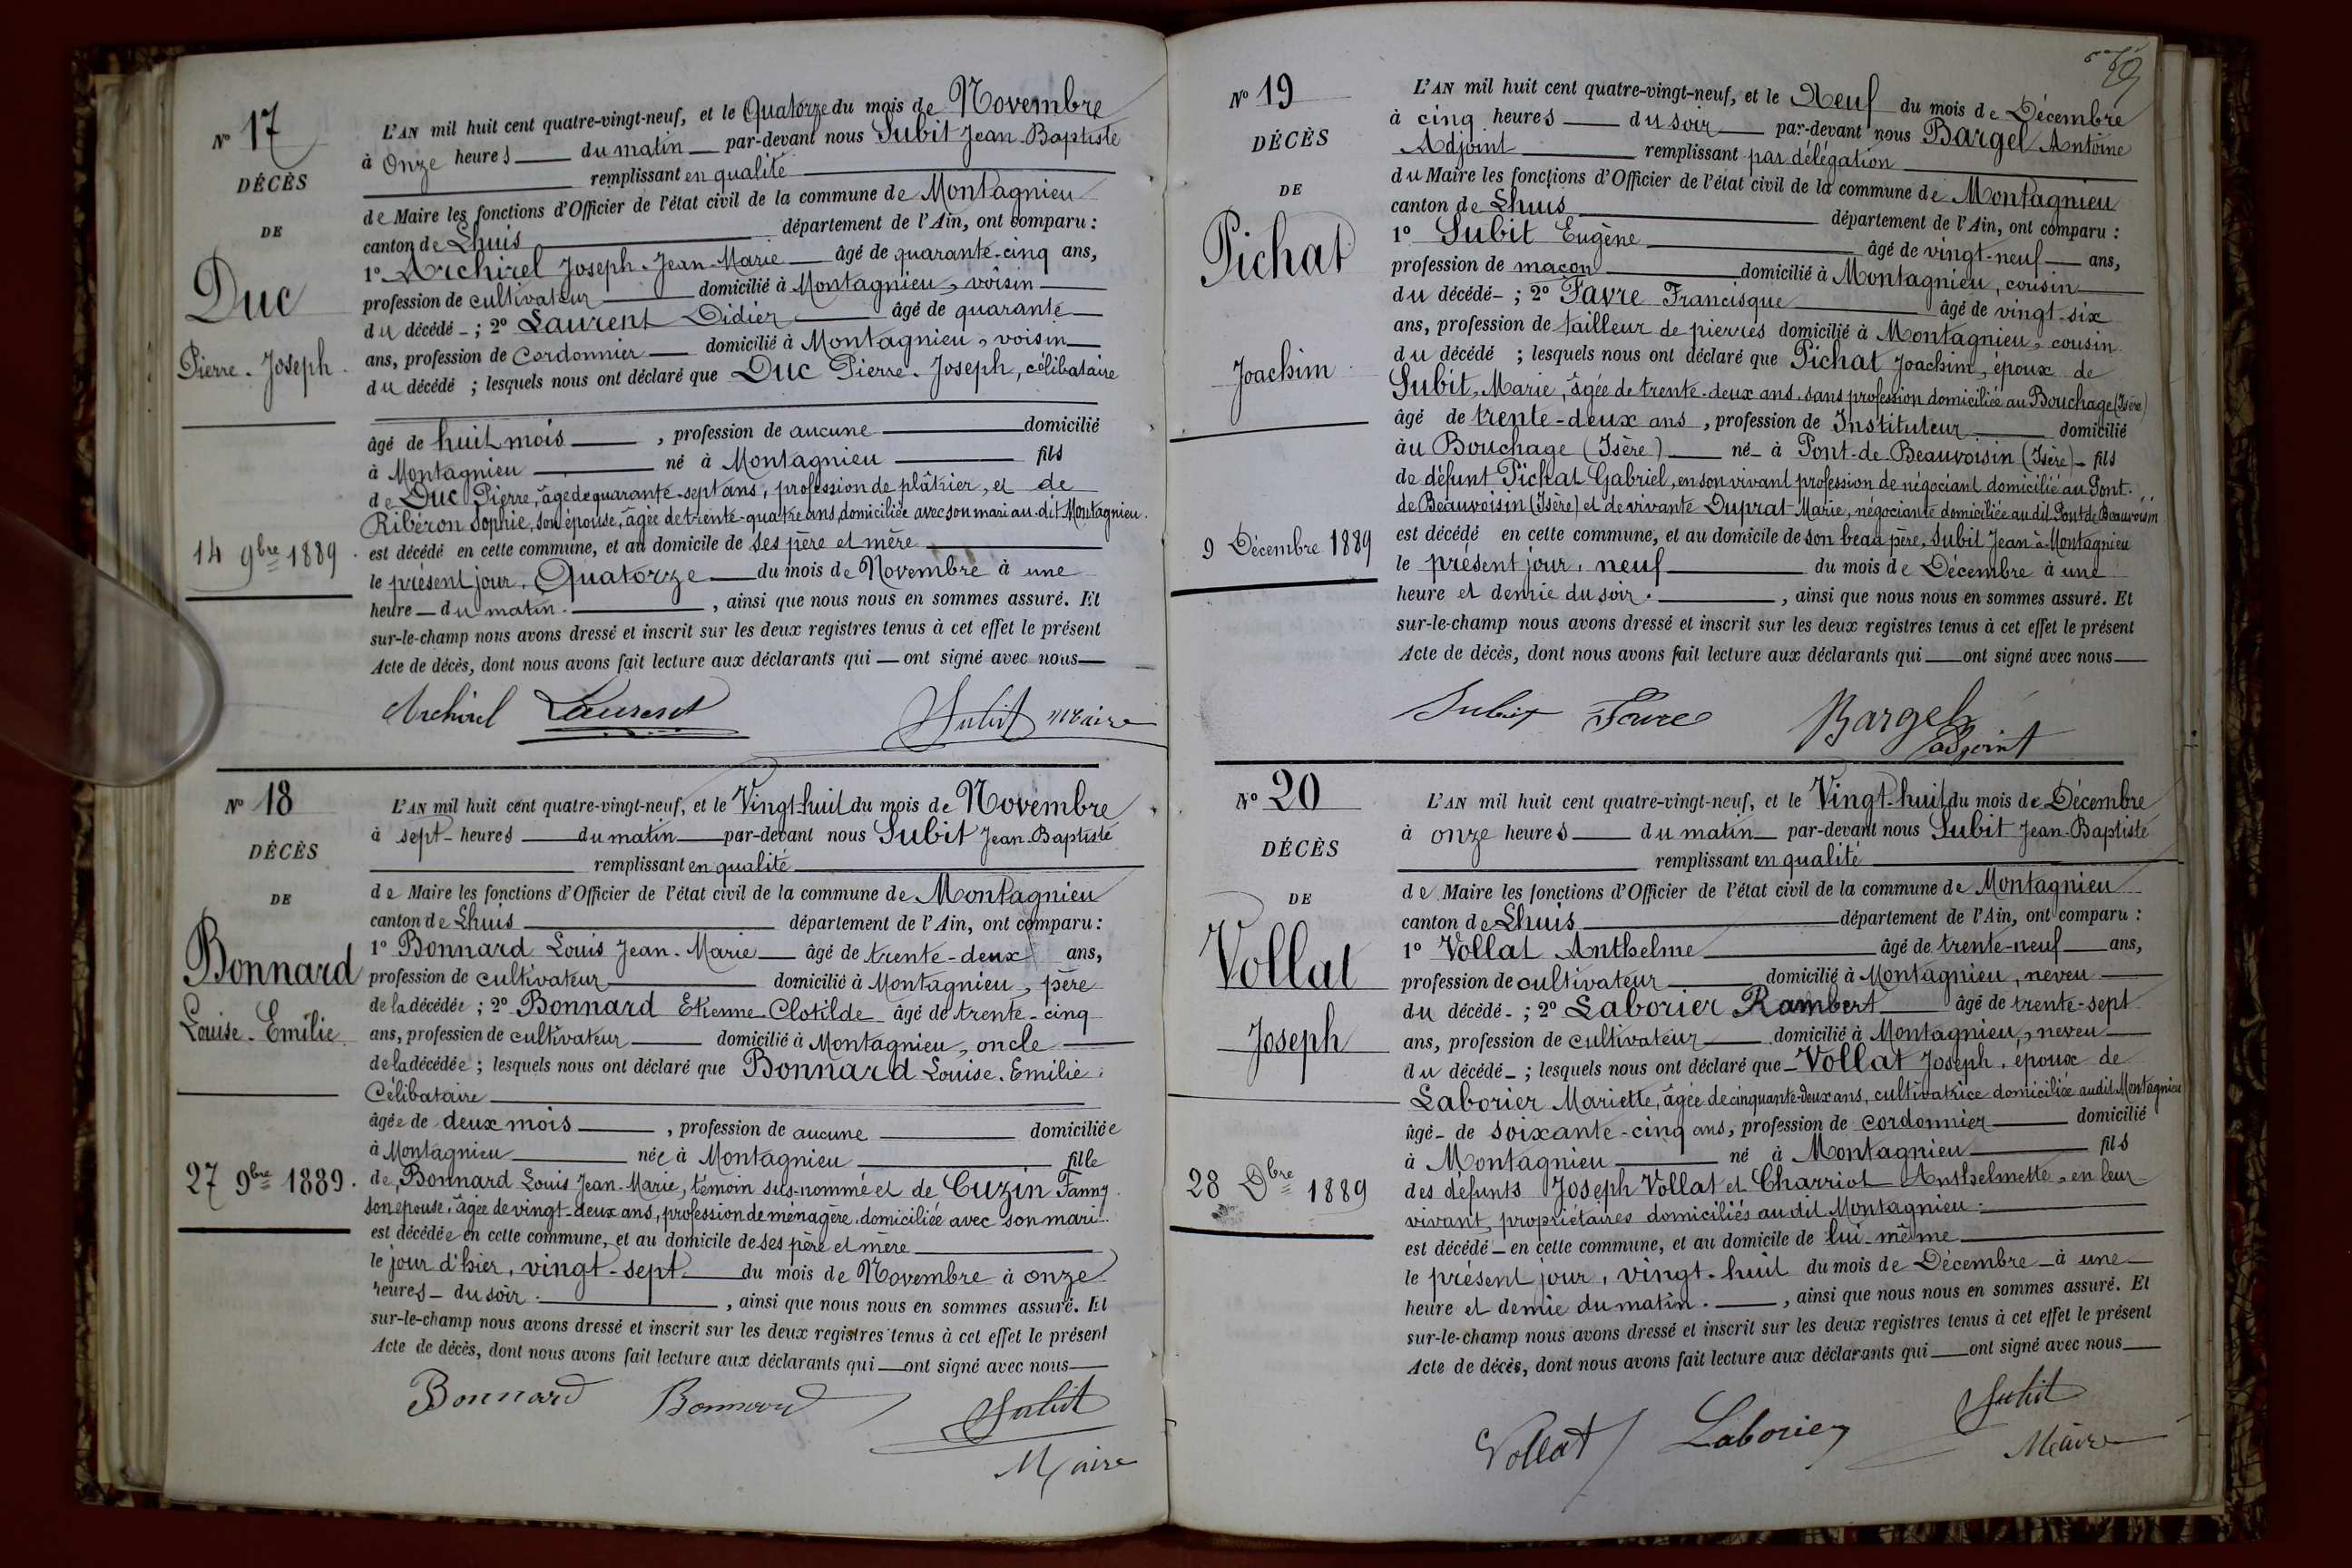 Nº 17
DÉCÈS
DE
Duc
Pierre-Joseph
14 9bre 1889.
L'AN mil huit cent quatre-vingt-neuf, et le Quatorze du mois de Novembre
à Onze heures du matin par-devant nous Subit Jean-Baptiste
remplissant en qualité
de Maire les fonctions d'Officier de l'état civil de la commune de Montagnieu
canton de Lhuis département de l'Ain, ont comparu :
1º Archirel Joseph-Jean-Marie âgé de quarante-cinq ans,
profession de cultivateur domicilié à Montagnieu, voisin
du décédé ; 2º Laurent Didier âgé de quarante
ans, profession de cordonnier domicilié à Montagnieu, voisin
du décédé ; lesquels nous ont déclaré que Duc Pierre-Joseph, célibataire
âgé de huit mois, profession de aucune domicilié
à Montagnieu né à Montagnieu fils
de Duc Pierre, âgé de quarante-sept ans, profession de plâtrier, et de
Ribéron Sophie, son épouse, âgée de trente-quatre ans, domiciliée avec son mari au-dit Montagnieu.
est décédé en cette commune, et au domicile de ses père et mère
le présent jour, Quatorze du mois de Novembre à une
heure du matin., ainsi que nous nous en sommes assuré. Et
sur-le-champ nous avons dressé et inscrit sur les deux registres tenus à cet effet le présent
Acte de décès, dont nous avons fait lecture aux déclarants qui ont signé avec nous
Archirel Laurent Subit Maire
Nº 18
DÉCÈS
DE
Bonnard
Louise-Emilie
27 9bre 1889.
L'AN mil huit cent quatre-vingt-neuf, et le Vingt-huit du mois de Novembre
à sept heures du matin par-devant nous Subit Jean-Baptiste
remplissant en qualité
de Maire les fonctions d'Officier de l'état civil de la commune de Montagnieu
canton de Lhuis département de l'Ain, ont comparu :
1º Bonnard Louis Jean-Marie âgé de trente-deux ans,
profession de cultivateur domicilié à Montagnieu, père
de la décédée ; 2º Bonnard Etienne-Clotilde âgé de trente-cinq
ans, profession de cultivateur domicilié à Montagnieu, oncle
de la décédée ; lesquels nous ont déclaré que Bonnard Louise-Emilie,
Célibataire
âgée de deux mois, profession de aucune domiciliée
à Montagnieu née à Montagnieu fille
de Bonnard Louis Jean-Marie, témoin sus-nommé et de Cuzin Fanny
son épouse, âgée de vingt-deux ans, profession de ménagère, domiciliée avec son mari
est décédée en cette commune, et au domicile de ses père et mère
le jour d'hier, vingt-sept du mois de Novembre à onze
heures du soir., ainsi que nous nous en sommes assuré. Et
sur-le-champ nous avons dressé et inscrit sur les deux registres tenus à cet effet le présent
Acte de décès, dont nous avons fait lecture aux déclarants qui ont signé avec nous
Bonnard Bonnard Subit
Maire
Nº 19
DÉCÈS
DE
Pichat
Joachim
9 Décembre 1889
L'AN mil huit cent quatre-vingt-neuf, et le Neuf du mois de Décembre
à cinq heures du soir par-devant nous Bargel Antoine
Adjoint remplissant par délégation
du Maire les fonctions d'Officier de l'état civil de la commune de Montagnieu
canton de Lhuis département de l'Ain, ont comparu :
1º Subit Eugène âgé de vingt-neuf ans,
profession de maçon domicilié à Montagnieu, cousin
du décédé ; 2º Favre Francisque âgé de vingt-six
ans, profession de tailleur de pierres domicilié à Montagnieu, cousin
du décédé ; lesquels nous ont déclaré que Pichat Joachim, époux de
Subit, Marie, âgée de trente-deux ans, sans profession domiciliée au Bouchage (Isère)
âgé de trente-deux ans, profession de Instituteur domicilié
au Bouchage (Isère) né à Pont-de-Beauvoisin (Isère) fils
de défunt Pichat Gabriel, en son vivant profession de négociant domicilié au Pont-
de Beauvoisin (Isère) et de vivante Duprat Marie, négociante domiciliée au dit Pont de Beauvoisin
est décédé en cette commune, et au domicile de son beau père, Subit Jean à Montagnieu
le présent jour, neuf du mois de Décembre à une
heure et demie du soir., ainsi que nous nous en sommes assuré. Et
sur-le-champ nous avons dressé et inscrit sur les deux registres tenus à cet effet le présent
Acte de décès, dont nous avons fait lecture aux déclarants qui ont signé avec nous
Subit Favre Bargel
adjoint
Nº 20
DÉCÈS
DE
Vollat
Joseph
28 Dbre 1889
L'AN mil huit cent quatre-vingt-neuf, et le Vingt-huit du mois de Décembre
à onze heures du matin par-devant nous Subit Jean-Baptiste
remplissant en qualité
de Maire les fonctions d'Officier de l'état civil de la commune de Montagnieu
canton de Lhuis département de l'Ain, ont comparu :
1º Vollat Anthelme âgé de trente-neuf ans,
profession de cultivateur domicilié à Montagnieu, neveu
du décédé ; 2º Laborier Rambert âgé de trente-sept
ans, profession de cultivateur domicilié à Montagnieu, neveu
du décédé ; lesquels nous ont déclaré que Vollat Joseph, époux de
Laborier Mariette, âgée de cinquante-deux ans, cultivatrice domiciliée audit Montagnieu
âgé de soixante-cinq ans, profession de cordonnier domicilié
à Montagnieu né à Montagnieu fils
des défunts Joseph Vollat et Charriot Anthelmette, en leur
vivant, propriétaires domiciliés au dit Montagnieu.
est décédé en cette commune, et au domicile de lui-même
le présent jour, vingt-huit du mois de Décembre à une
heure et demie du matin., ainsi que nous nous en sommes assuré. Et
sur-le-champ nous avons dressé et inscrit sur les deux registres tenus à cet effet le présent
Acte de décès, dont nous avons fait lecture aux déclarants qui ont signé avec nous
Vollat Laborier Subit
Maire